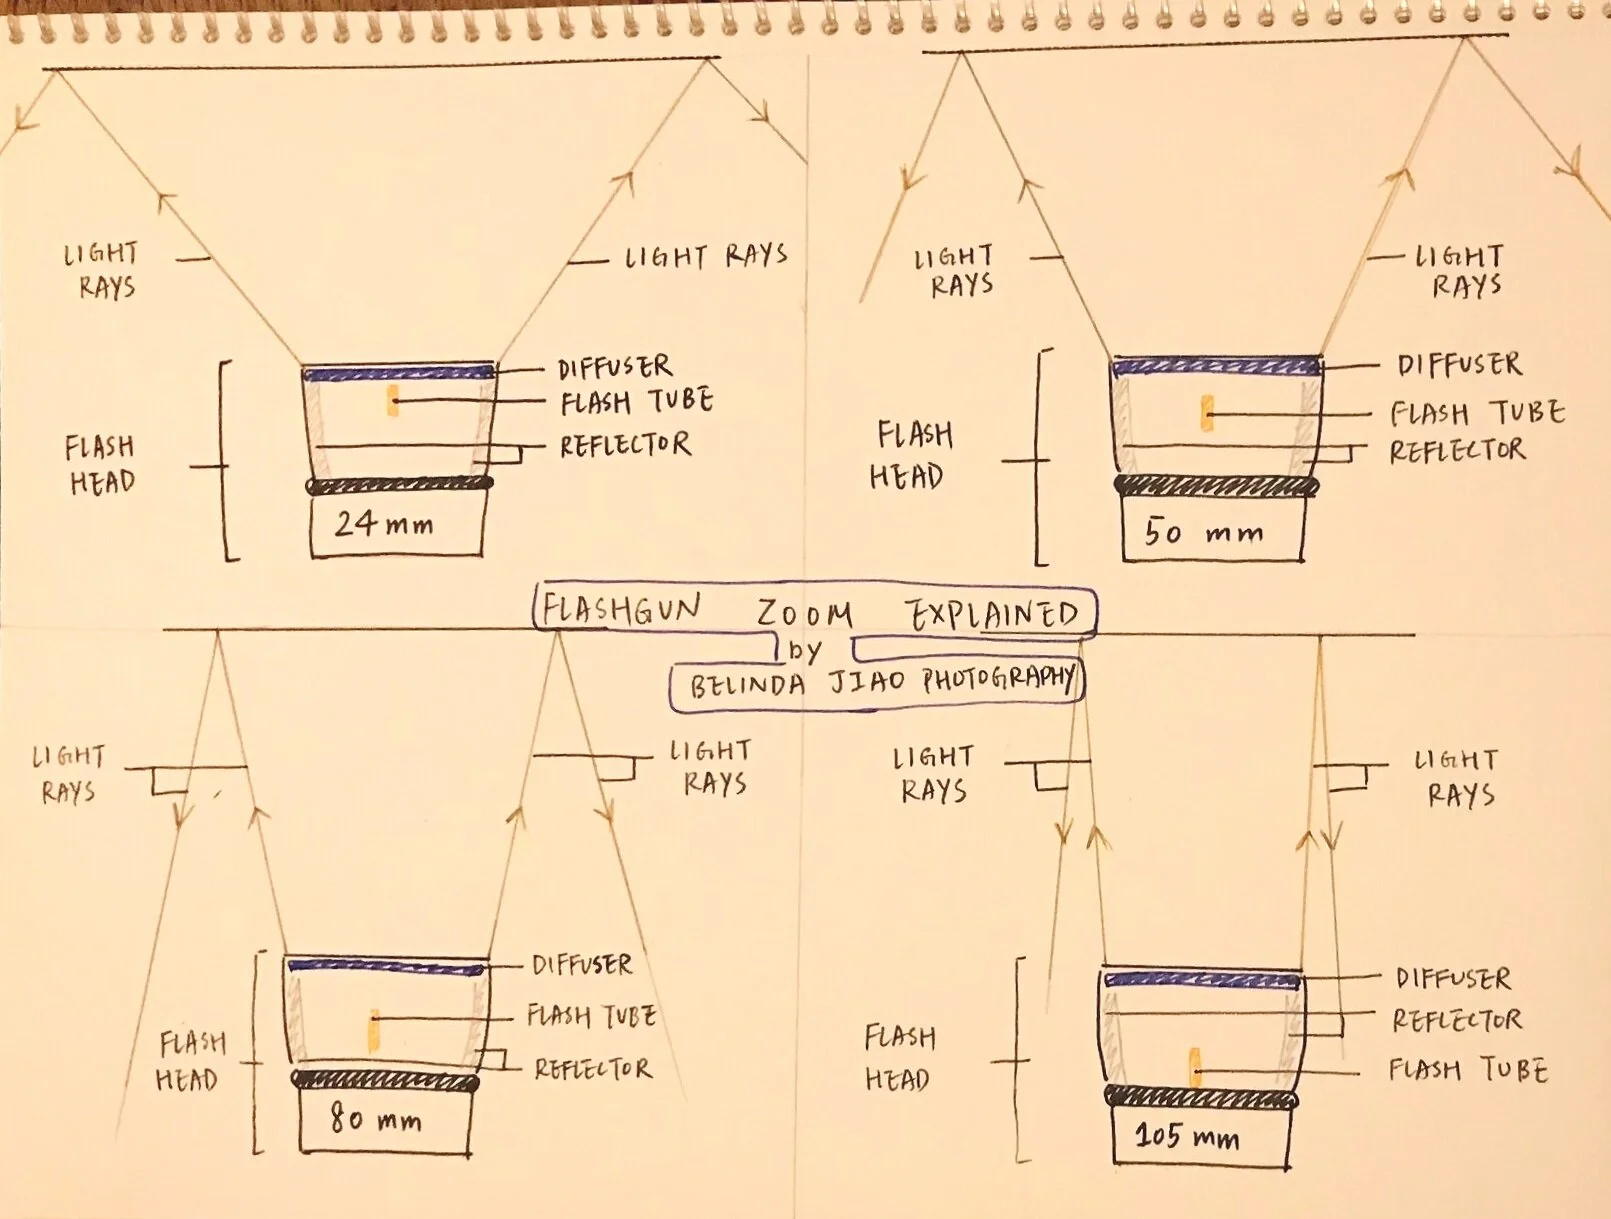 LIGHT
RAYS
LIGHT RAYS
DIFFUSER
FLASH TUBE
REFLECTOR
FLASH
HEAD
24 mm
LIGHT
RAYS
LIGHT
RAYS
DIFFUSER
FLASH TUBE
REFLECTOR
FLASH
HEAD
50 mm
FLASHGUN ZOOM EXPLAINED
by
BELINDA JIAO PHOTOGRAPHY
LIGHT
RAYS
LIGHT
RAYS
DIFFUSER
FLASH TUBE
REFLECTOR
FLASH
HEAD
80 mm
LIGHT
RAYS
LIGHT
RAYS
DIFFUSER
REFLECTOR
FLASH TUBE
FLASH
HEAD
105 mm